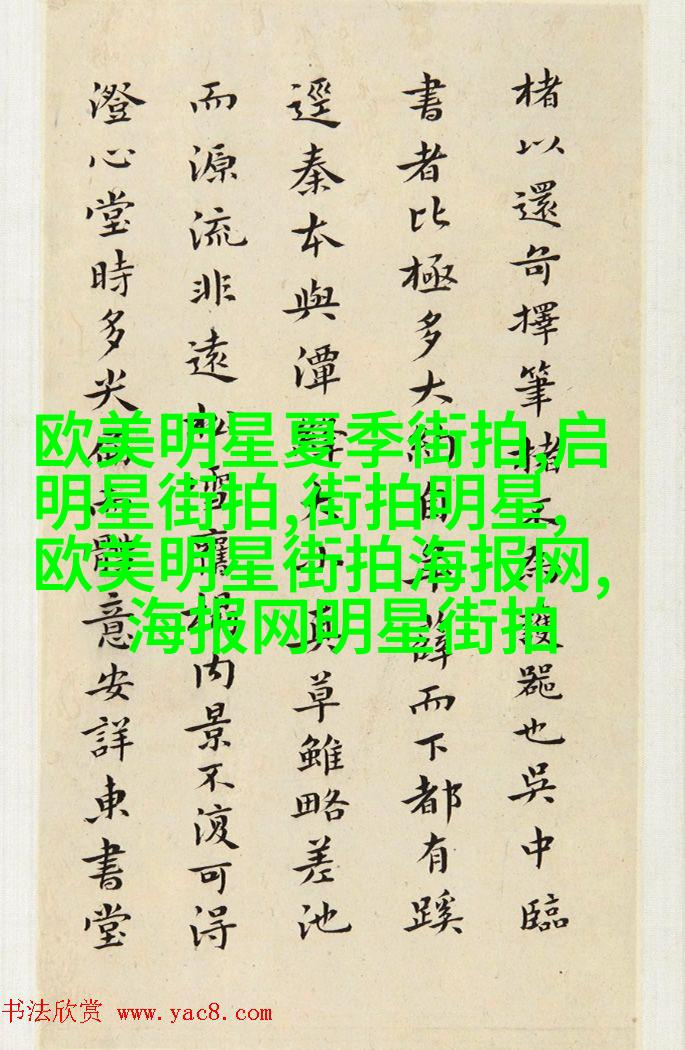 楮以還奇擇筆楮不為器也吳中臨
書者比極多大約自薛而下都有蹊
逕秦本與潭真草雖略差池
而源流非遠松雪舊内景不復可得
澄心堂時多尖意安詳東書堂
欧美明星夏季街拍,启
明星街拍,街拍明星,
欧美明星街拍海报网,
海报网明星街拍
书法欣赏 www.yac8.com